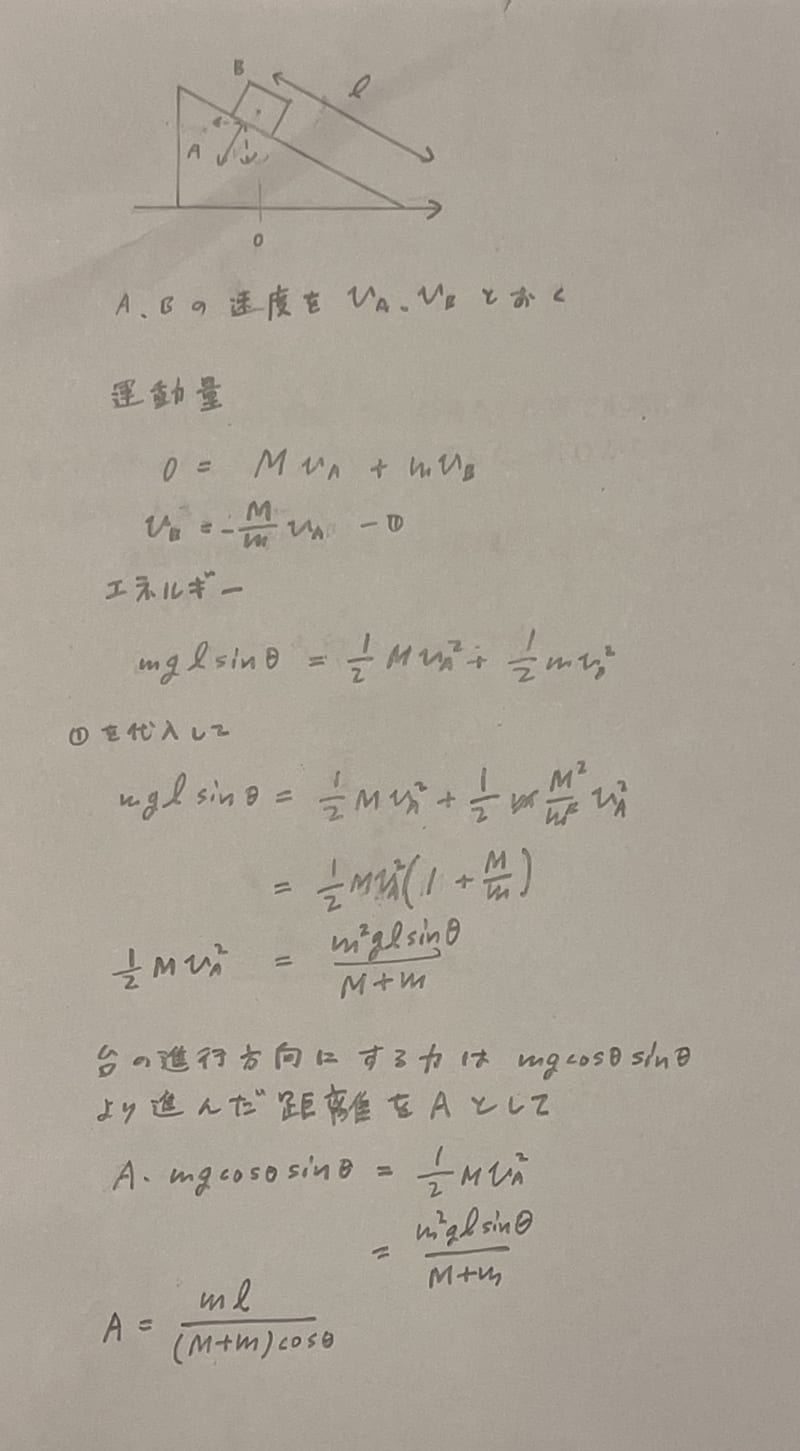 B
l
A
O
A、Bの速度を v_A、v_B とおく
運動量
0 = M v_A + m v_B
v_B = -\frac{M}{m} v_A ー①
エネルギー
mg l sinθ = \frac{1}{2} M v_A^2 + \frac{1}{2} m v_B^2
①を代入して
mg l sinθ = \frac{1}{2} M v_A^2 + \frac{1}{2} m \frac{M^2}{m^2} v_A^2
= \frac{1}{2} M v_A^2 (1 + \frac{M}{m})
\frac{1}{2} M v_A^2 = \frac{m^2 g l sinθ}{M+m}
台の進行方向にする力は mg cosθ sinθ
より進んだ距離をAとして
A・mg cosθ sinθ = \frac{1}{2} M v_A^2
= \frac{m^2 g l sinθ}{M+m}
A = \frac{m l}{(M+m) cosθ}